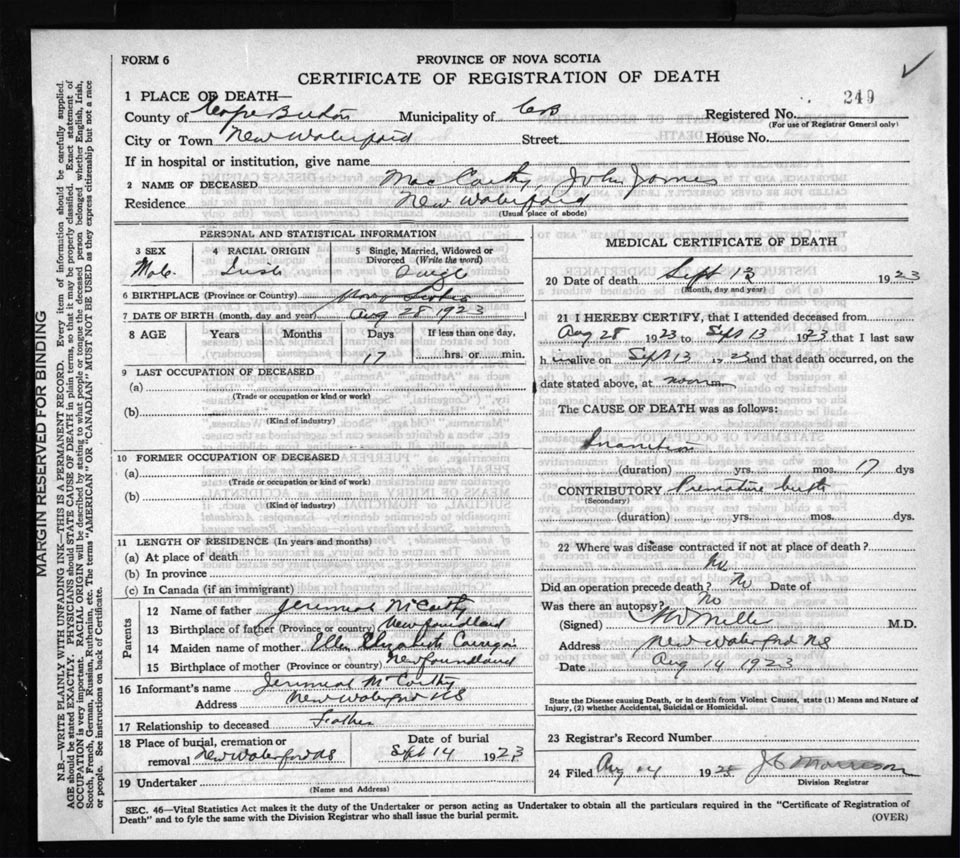 FORM 6
PROVINCE OF NOVA SCOTIA
CERTIFICATE OF REGISTRATION OF DEATH
249
1 PLACE OF DEATH—
County of Cape Breton Municipality of CB Registered No.
(For use of Registrar General only)
City or Town New Waterford Street House No.
If in hospital or institution, give name
2 NAME OF DECEASED Mac Carthy, John James
Residence New Waterford
(Usual place of abode)
PERSONAL AND STATISTICAL INFORMATION
3 SEX 4 RACIAL ORIGIN 5 Single, Married, Widowed or
Divorced (Write the word)
Male Irish Single
6 BIRTHPLACE (Province or Country) Nova Scotia
7 DATE OF BIRTH (month, day and year) Aug 28 1923
8 AGE Years Months Days If less than one day,
17 hrs. or min.
9 LAST OCCUPATION OF DECEASED
(a)
(Trade or occupation or kind of work)
(b)
(Kind of industry)
10 FORMER OCCUPATION OF DECEASED
(a)
(Trade or occupation or kind of work)
(b)
(Kind of industry)
11 LENGTH OF RESIDENCE (In years and months)
(a) At place of death
(b) In province
(c) In Canada (if an immigrant)
Parents
12 Name of father Jeremiah McCarthy
13 Birthplace of father (Province or country) Newfoundland
14 Maiden name of mother Ellen Elizabeth
15 Birthplace of mother (Province or country) Newfoundland
16 Informant's name Jeremiah McCarthy
Address New Waterford NS
17 Relationship to deceased Father
18 Place of burial, cremation or Date of burial
removal New Waterford NS Sept 14 1923
19 Undertaker
(Name and Address)
MEDICAL CERTIFICATE OF DEATH
20 Date of death Sept 13 1923
(Month, day and year)
21 I HEREBY CERTIFY, that I attended deceased from
Aug 28 1923 to Sept 13 1923 that I last saw
him alive on Sept 13 1923 and that death occurred, on the
date stated above, at noon m
The CAUSE OF DEATH was as follows:
Inanition
(duration) yrs. mos. 17 dys
CONTRIBUTORY Premature birth
(Secondary)
(duration) yrs. mos. dys.
22 Where was disease contracted if not at place of death?
No
Did an operation precede death? No Date of
Was there an autopsy? No
(Signed) Miller M.D.
Address New Waterford NS
Date Aug 14 1923
State the Disease causing Death, or in death from Violent Causes, state (1) Means and Nature of
Injury, (2) whether Accidental, Suicidal or Homicidal.
23 Registrar's Record Number
24 Filed Aug 14 1923 J C Morrison
Division Registrar
SEC. 46—Vital Statistics Act makes it the duty of the Undertaker or person acting as Undertaker to obtain all the particulars required in the "Certificate of Registration of
Death" and to fyle the same with the Division Registrar who shall issue the burial permit.
(OVER)
MARGIN RESERVED FOR BINDING
N.B.—WRITE PLAINLY WITH UNFADING INK—THIS IS A PERMANENT RECORD. Every item of information should be carefully supplied.
AGE should be stated EXACTLY. PHYSICIANS should STATE CAUSE OF DEATH in plain terms, so that it may be properly classified. Exact statement of
OCCUPATION is very important. RACIAL ORIGIN will be described by stating to what people or tongue the deceased person belonged whether English, Irish,
Scotch, French, German, Russian, Ruthenian, etc. The terms "AMERICAN" OR "CANADIAN" MUST NOT BE USED as they express citizenship but not a race
or people. See instructions on back of Certificate.